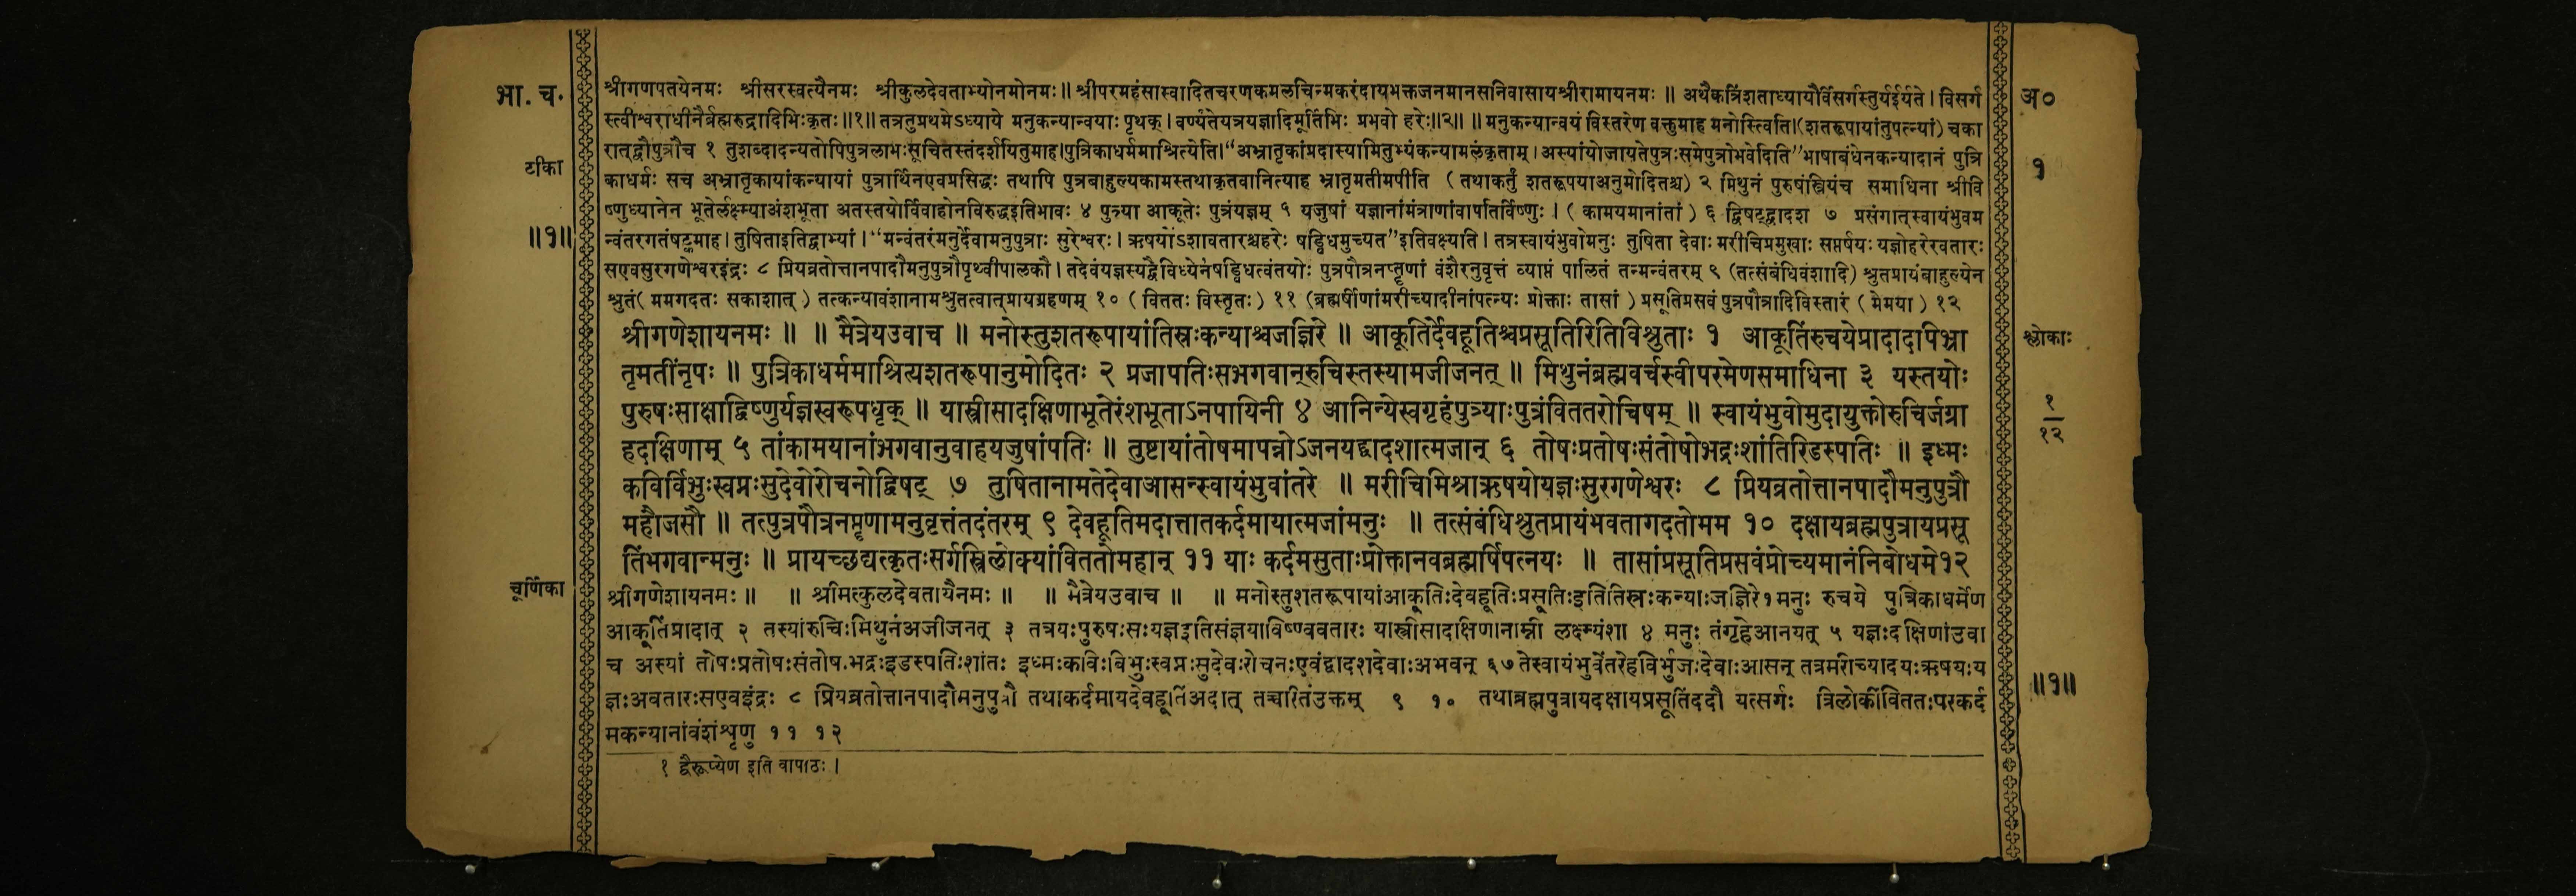 भा. च.
टीका
॥१॥
श्रीगणपतयेनमः श्रीसरस्वत्यैनमः श्रीकुलदेवताभ्योनमोनमः॥ श्रीपरमहंसास्वादितचरणकमलचिन्मकरंदायभक्तजनमानसनिवासायश्रीरामायनमः ॥ अथैकत्रिंशताध्यायैर्विसर्गस्तुर्यईर्यते। विसर्ग
स्त्वीश्वराधीनैर्ब्रह्मरुद्रादिभिःकृतः॥१॥ तत्रतुप्रथमेऽध्याये मनुकन्यान्वयाः पृथक्। वर्ण्यंतेयत्रयज्ञादिमूर्तिभिः प्रभवो हरेः॥२॥ ॥ मनुकन्यान्वयं विस्तरेण वक्तुमाह मनोस्त्विति।(शतरूपायांतुपत्न्यां) चका
रात्द्वौपुत्रौच १ तुशब्दादन्यतोपिपुत्रलाभःसूचितस्तंदर्शयितुमाह।पुत्रिकाधर्ममाश्रित्येति।“अभ्रातृकांप्रदास्यामितुभ्यंकन्यामलंकृताम्। अस्यांयोजायतेपुत्रःसमेपुत्रोभवेदिति”भाषाबंधेनकन्यादानं पुत्रि
काधर्मः सच अभ्रातृकायांकन्यायां पुत्रार्थिनएवप्रसिद्धः तथापि पुत्रबाहुल्यकामस्तथाकृतवानित्याह भ्रातृमतीमपीति (तथाकर्तुं शतरूपयाअनुमोदितश्च) २ मिथुनं पुरुषंस्त्रियंच समाधिना श्रीवि
ष्णुध्यानेन भूतेर्लक्ष्म्याअंशभूता अतस्तयोर्विवाहोनविरुद्धइतिभावः ४ पुत्र्या आकूतेः पुत्रंयज्ञम् ५ यजुषां यज्ञानांमंत्राणांवार्पतिर्विष्णुः। (कामयमानांतां) ६ द्विषट्द्वादश ७ प्रसंगात्स्वायंभुवम
न्वंतरगतंषट्कमाह। तुषिताइतिद्वाभ्यां। “मन्वंतरंमनुर्देवामनुपुत्राः सुरेश्वरः। ऋषयोंऽशावतारश्चहरेः षड्विधमुच्यत”इतिवक्ष्यति। तत्रस्वायंभुवोमनुः तुषिता देवाः मरीचिप्रमुखाः सप्तर्षयः यज्ञोहरेरवतारः
सएवसुरगणेश्वरइंद्रः ८ प्रियव्रतोत्तानपादौमनुपुत्रौपृथ्वीपालकौ। तदेवंयज्ञस्यद्वैविध्येनषड्विधत्वंतयोः पुत्रपौत्रनप्तॄणां वंशैरनुवृत्तं व्याप्तं पालितं तन्मन्वंतरम् ९ (तत्संबंधिवंशादि) श्रुतप्रायंबाहुल्येन
श्रुतं(ममगदतः सकाशात्) तत्कन्यावंशानामश्रुतत्वात्प्रायग्रहणम् १० (विततः विस्तृतः) ११ (ब्रह्मर्षीणांमरीच्यादीनांपत्न्यः प्रोक्ताः तासां) प्रसूतिप्रसवं पुत्रपौत्रादिविस्तारं (मेमया) १२
श्रीगणेशायनमः ॥ ॥ मैत्रेयउवाच ॥ मनोस्तुशतरूपायांतिस्रःकन्याश्चजज्ञिरे ॥ आकूतिर्देवहूतिश्चप्रसूतिरितिविश्रुताः १ आकूतिंरुचयेप्रादादापिभ्रा
तृमतींनृपः ॥ पुत्रिकाधर्ममाश्रित्यशतरूपानुमोदितः २ प्रजापतिःसभगवान्रुचिस्तस्यामजीजनत् ॥ मिथुनंब्रह्मवर्चस्वीपरमेणसमाधिना ३ यस्तयोः
पुरुषःसाक्षाद्विष्णुर्यज्ञस्वरूपधृक् ॥ यास्त्रीसादक्षिणाभूतेरंशभूताऽनपायिनी ४ आनिन्येस्वगृहंपुत्र्याःपुत्रंविततरोचिषम् ॥ स्वायंभुवोमुदायुक्तोरुचिर्जग्रा
हदक्षिणाम् ५ तांकामयानांभगवानुवाहयजुषांपतिः ॥ तुष्टायांतोषमापन्नोऽजनयद्द्वादशात्मजान् ६ तोषःप्रतोषःसंतोषोभद्रःशांतिरिडस्पतिः ॥ इध्मः
कविर्विभुःस्वप्नःसुदेवोरोचनोद्विषट् ७ तुषितानामतेदेवाआसन्स्वायंभुवांतरे ॥ मरीचिमिश्राऋषयोयज्ञःसुरगणेश्वरः ८ प्रियव्रतोत्तानपादौमनुपुत्रौ
महौजसौ ॥ तत्पुत्रपौत्रनप्तॄणामनुवृत्तंतदंतरम् ९ देवहूतिमदात्तातकर्दमायात्मजांमनुः ॥ तत्संबंधिश्रुतप्रायंभवतागदतोमम १० दक्षायब्रह्मपुत्रायप्रसू
तिंभगवान्मनुः ॥ प्रायच्छद्यत्कृतःसर्गस्त्रिलोक्यांविततोमहान् ११ याः कर्दमसुताःप्रोक्तानवब्रह्मर्षिपत्नयः ॥ तासांप्रसूतिप्रसवंप्रोच्यमानंनिबोधमे१२
चूर्णिका
श्रीगणेशायनमः॥ ॥ श्रीमत्कुलदेवतायैनमः॥ ॥ मैत्रेयउवाच ॥ ॥ मनोस्तुशतरूपायांआकूतिःदेवहूतिःप्रसूतिःइतितिस्रःकन्याःजज्ञिरे१मनुः रुचये पुत्रिकाधर्मेण
आकूतिंप्रादात् २ तस्यांरुचिःमिथुनंअजीजनत् ३ तत्रयःपुरुषःसःयज्ञइतिसंज्ञयाविष्ण्ववतारः यास्त्रीसादक्षिणानाम्नी लक्ष्म्यंशा ४ मनुः तंगृहेआनयत् ५ यज्ञःदक्षिणांउवा
च अस्यां तोषःप्रतोषःसंतोष.भद्रःइडस्पतिःशांतः इध्मःकविःविभुःस्वप्नःसुदेवःरोचनःएवंद्वादशदेवाःअभवन् ६७ तेस्वायंभुवेंतरेहविर्भुजःदेवाःआसन् तत्रमरीच्यादयःऋषयःय
ज्ञःअवतारःसएवइंद्रः ८ प्रियव्रतोत्तानपादौमनुपुत्रौ तथाकर्दमायदेवहूतिंअदात् तच्चरितंउक्तम् ९ १० तथाब्रह्मपुत्रायदक्षायप्रसूतिंददौ यत्सर्गः त्रिलोकींविततःपरकर्द
मकन्यानांवंशंश्रृणु ११ १२
१ द्वैरूप्येण इति वापाठः।
अ०
१
श्लोकाः
१
१२
॥१॥